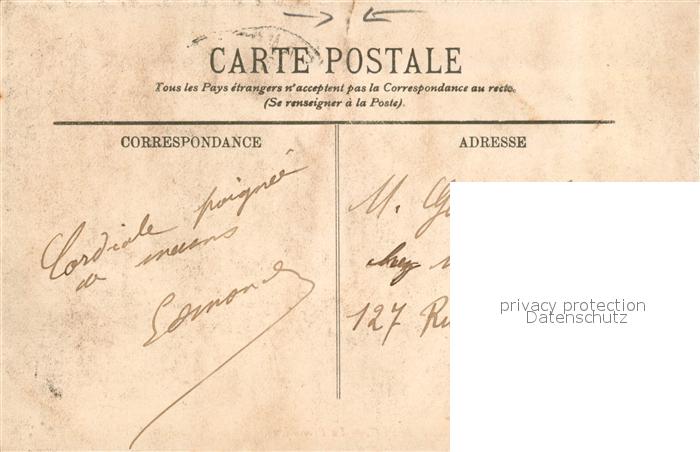 CARTE POSTALE
Tous les Pays étrangers n'acceptent pas la Correspondance au recto.
(Se renseigner à la Poste).
CORRESPONDANCE
ADRESSE
Cordiale poignée
de mains
Edmond
M.
chez
127 Ru
privacy protection
Datenschutz